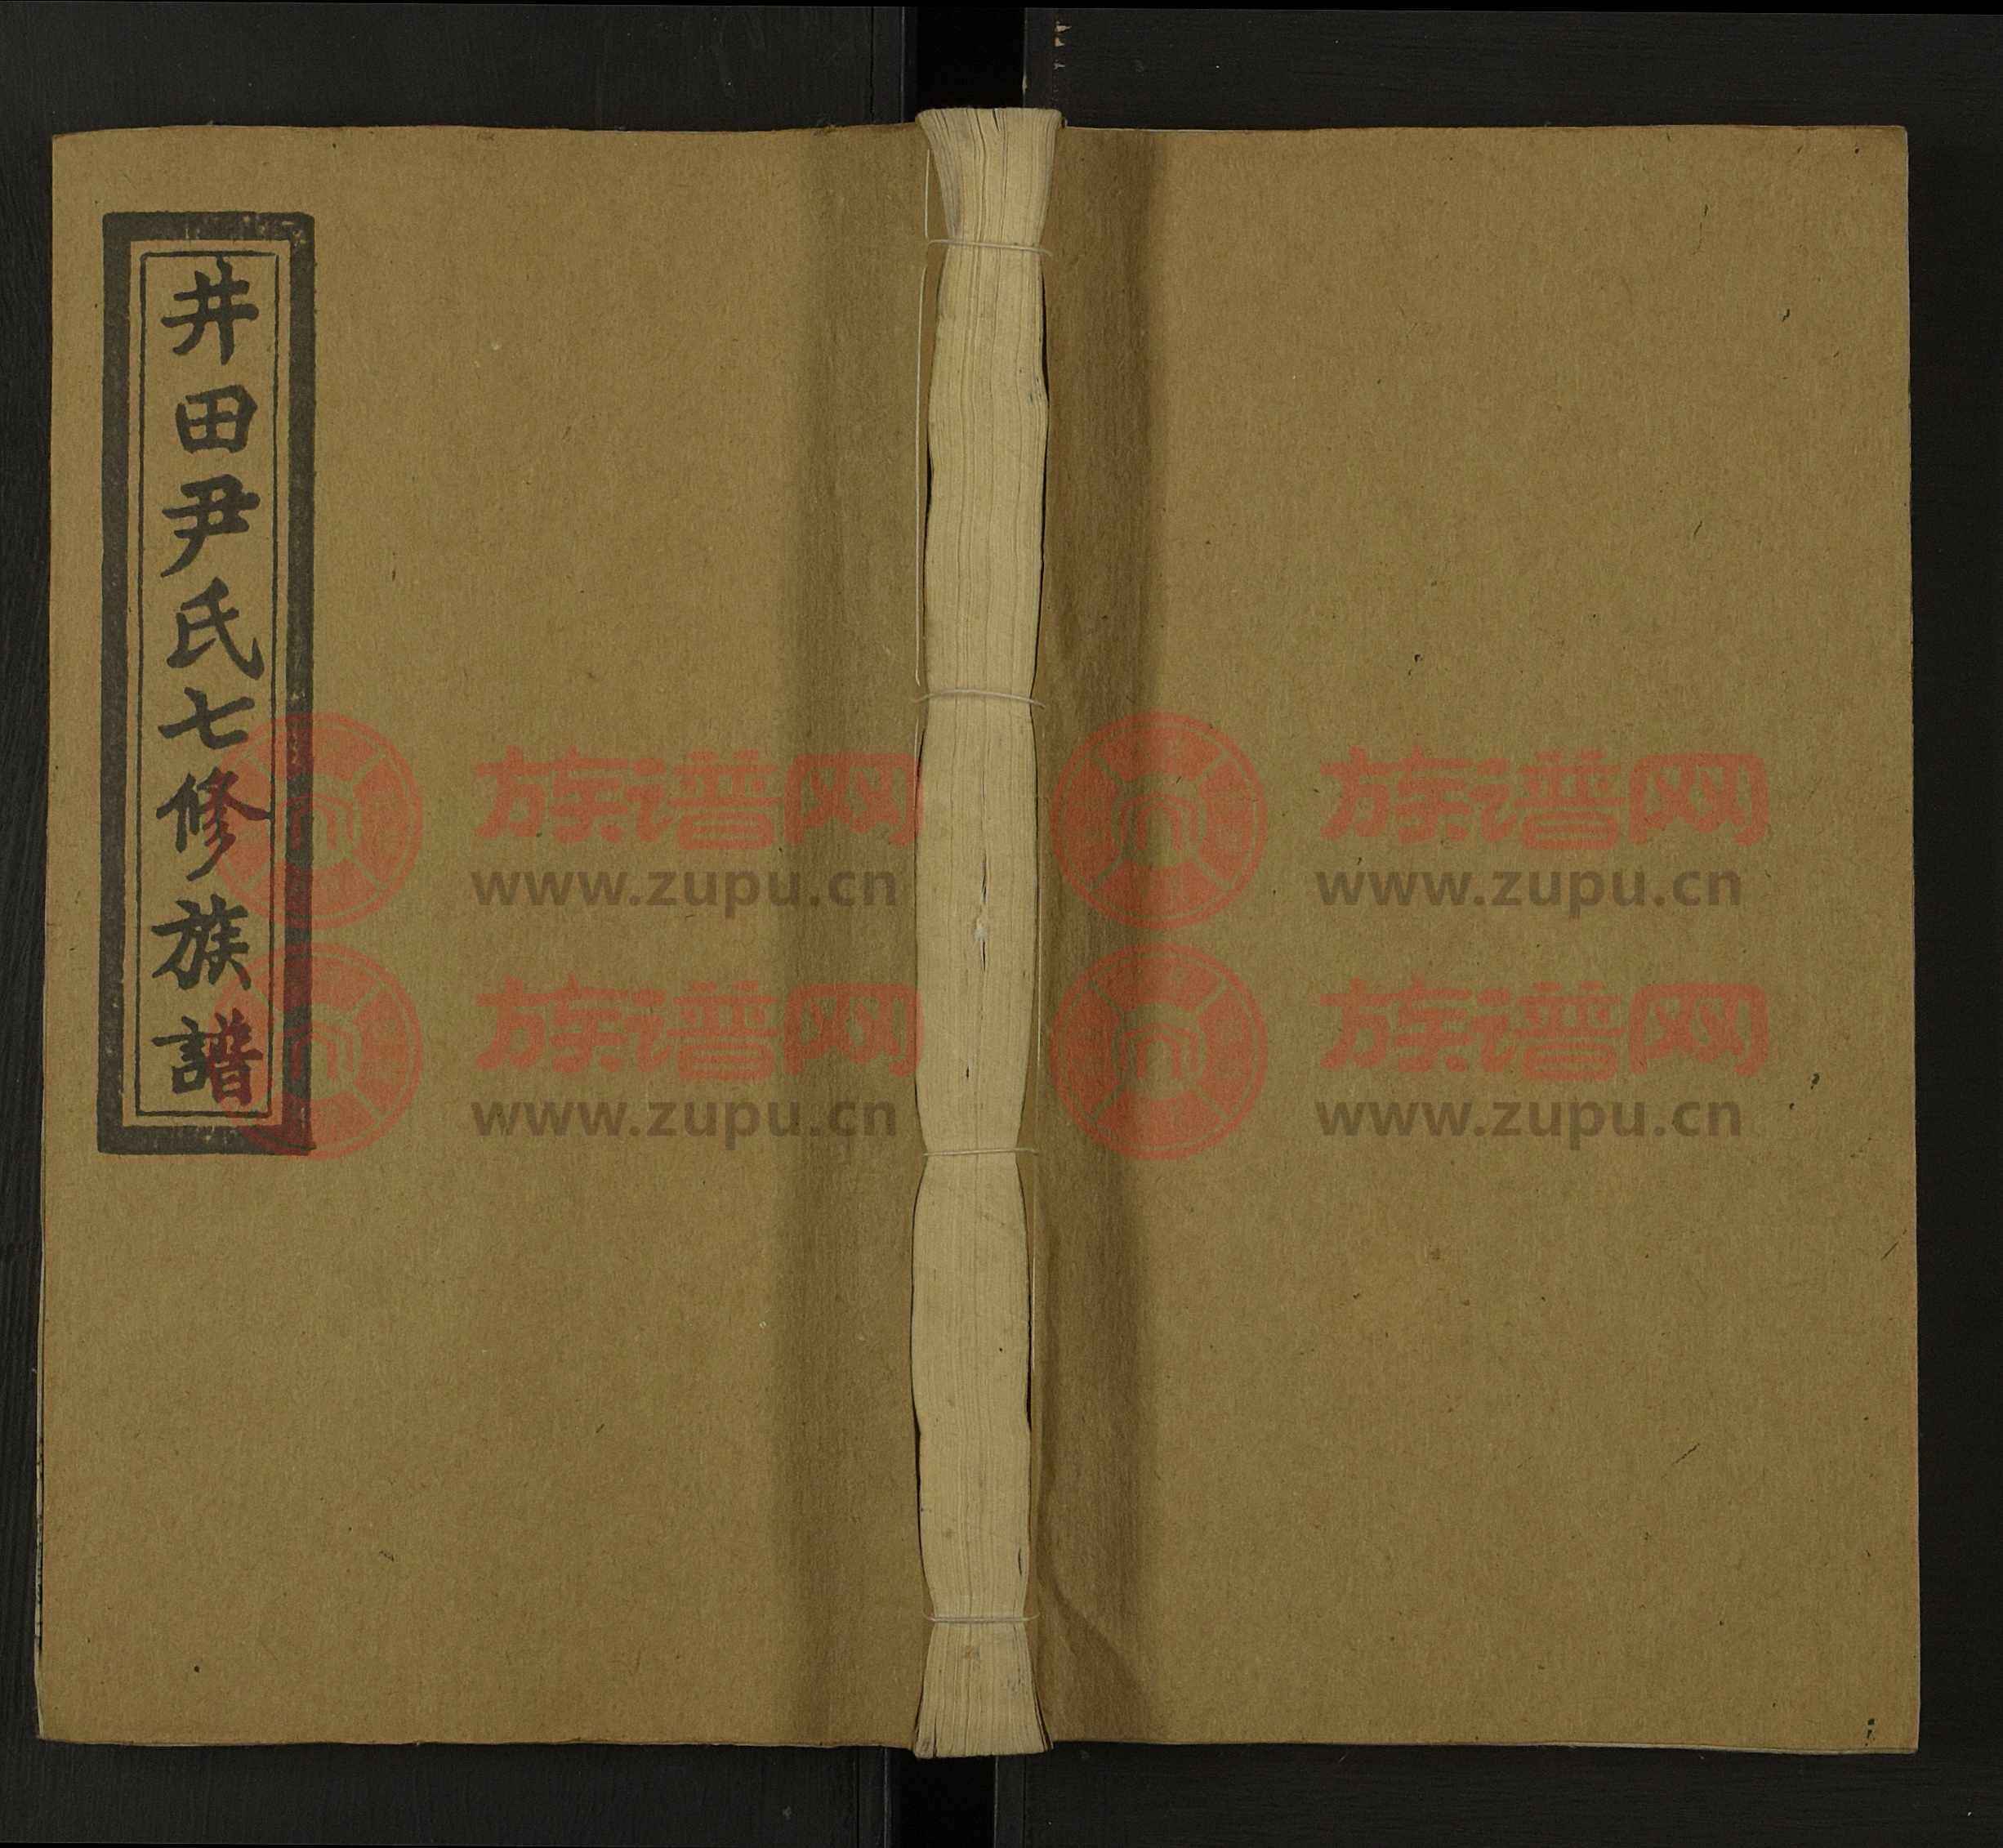 井田尹氏七修族譜
族谱网
www.zupu.cn
族谱网
www.zupu.cn
族谱网
www.zupu.cn
族谱网
www.zupu.cn